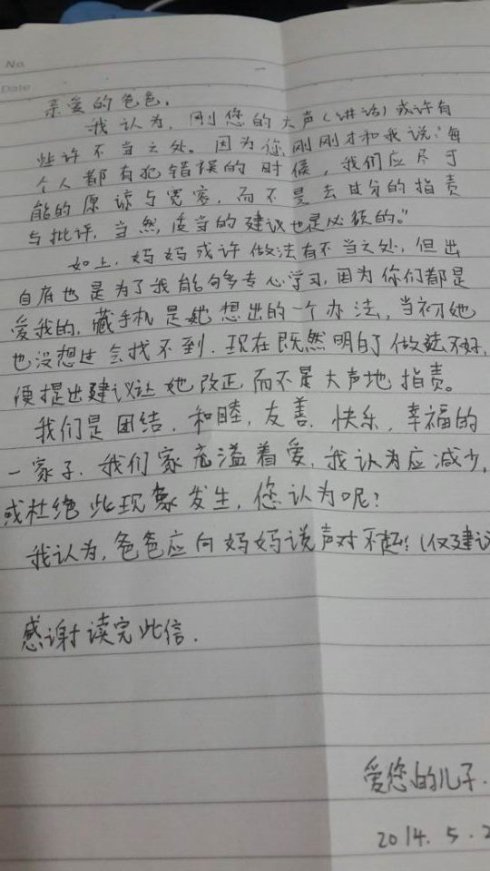 No.
Date
亲爱的爸爸,
我认为,刚您的大声(讲话)或许有
些许不当之处。因为你刚刚才和我说:"每
个人都有犯错误的时候,我们应尽可
能的原谅与宽容,而不是去过分的指责
与批评,当然,适当的建议也是必须的。"
如上,妈妈或许做法有不当之处,但出
自府也是为了我能够多专心学习,因为你们都是
爱我的,藏手机是她想出的一个办法,当初她
也没想过会找不到.现在既然明白了做法不好,
便提出建议让她改正,而不是大声地指责。
我们是团结,和睦,友善,快乐,幸福的
一家子.我们家充溢着爱,我认为应减少,
或杜绝此现象发生,您认为呢?
我认为,爸爸应向妈妈说声对不起!(仅建议
感谢读完此信.
爱您的儿子.
2014.5.2